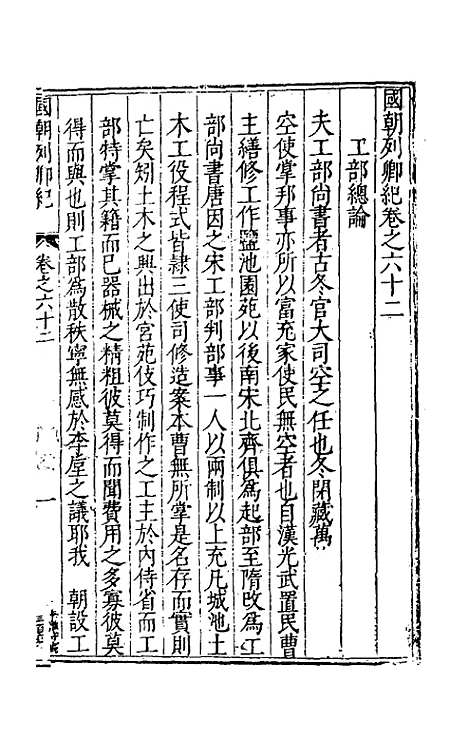 國朝列卿紀卷之六十二
工部總論
夫工部尚書者古冬官大司空之任也冬閉藏萬
空使掌邦事亦所以富充家使民無空者也自漢光武置民曹
主繕修工作鹽池園苑以後南宋北齊俱為起部至隋改為工
部尚書唐因之宋工部判部事一人以兩制以上充凡城池土
木工役程式皆隸三使司修造案本曹無所掌是名存而實則
亡矣矧土木之興出於宮苑伎巧制作之工主於內侍省而工
部特掌其籍而已器械之精粗彼莫得而聞費用之多寡彼莫
得而與也則工部為散秩寧無感於李垕之議耶我 朝設工
國朝列卿紀
卷之六十二
一